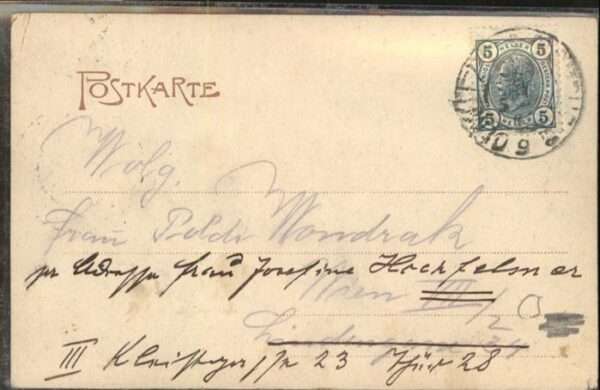 POSTKARTE
5 5
5 5
Wolg.
Frau Poldi Wondrak
pr Adresse Frau Josefine Hochfelsner
Wien VII/2
Lindengasse
III Kleistgasse 23 Thür 28